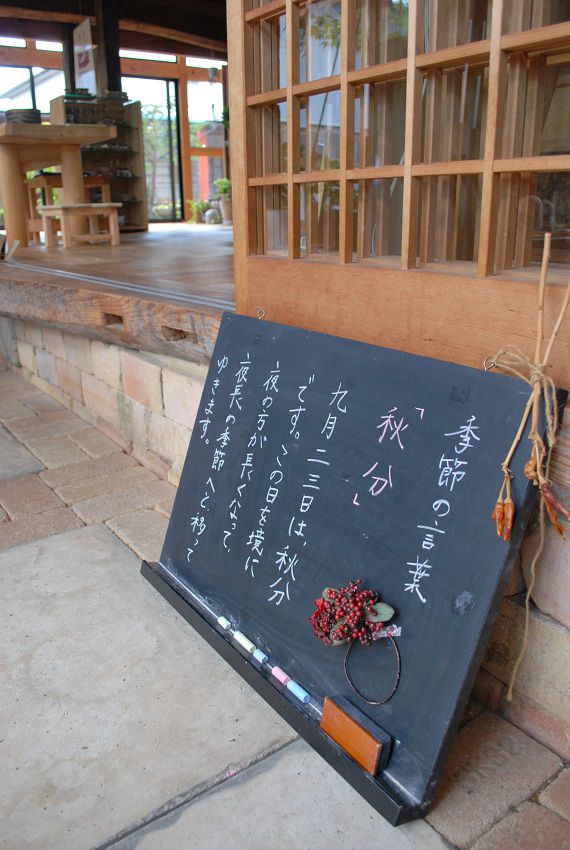 季節の言葉
「秋分」
九月二三日は、秋分
です。この日を境に
夜の方が長くなって、
夜長の季節へと、移って
ゆきます。